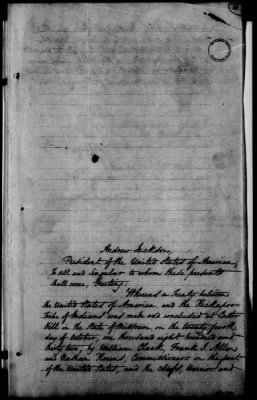 Andrew Jackson,
President of the United States of America,
To all and singular to whom these presents
shall come, Greeting:
Whereas a Treaty between
the United States of America and the Kickapoo
Tribe of Indians was made and concluded at Castor
Hill in the State of Missouri, on the twenty fourth
day of October, one thousand eight hundred and
thirty two, by William Clark, Frank J. Allen
and Nathan Kouns, Commissioners on the part
of the United States, and the chiefs, warriors and